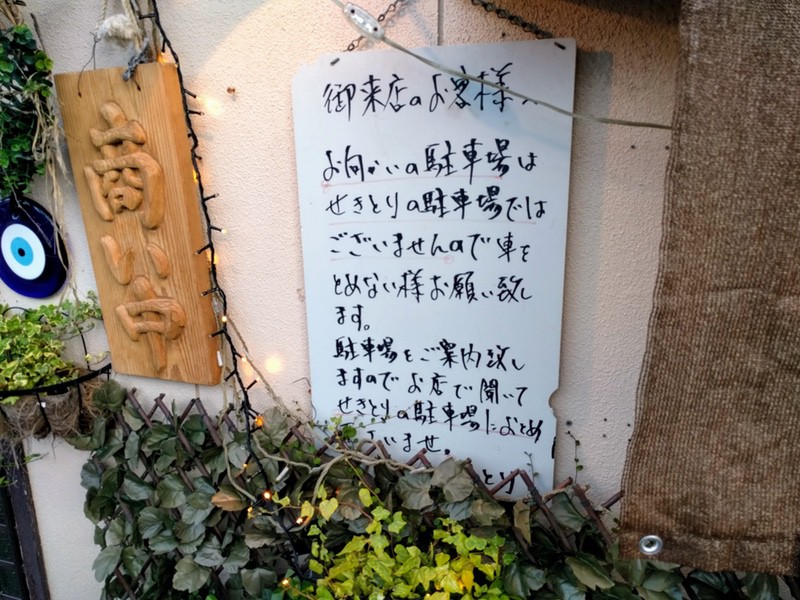 商い中
御来店のお客様へ
お向かいの駐車場は
せきとりの駐車場では
ございませんので車を
とめない様お願い致し
ます。
駐車場をご案内致し
ますのでお店で聞いて
せきとりの駐車場におとめ
ざいませ。
とり